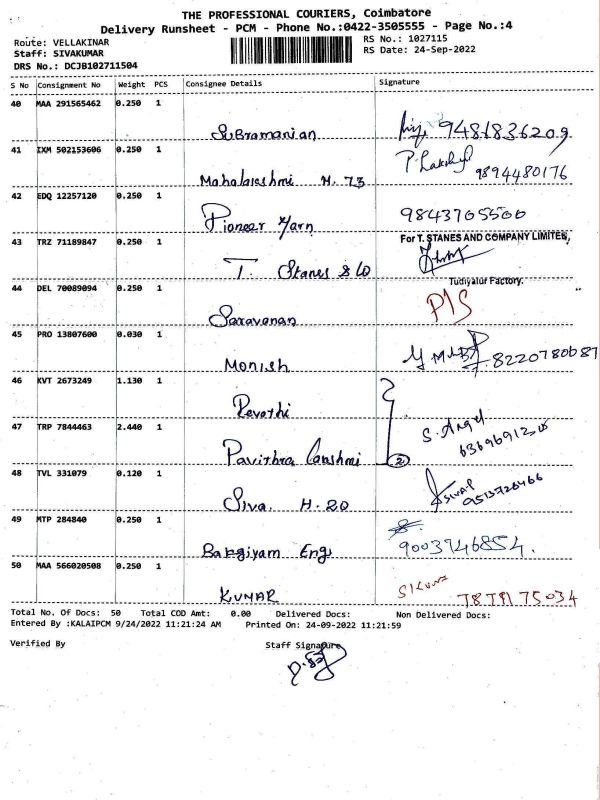 THE PROFESSIONAL COURIERS, Coimbatore
Delivery Runsheet - PCM - Phone No.:0422-3505555 - Page No.:4
Route: VELLAKINAR
RS No.: 1027115
Staff: SIVAKUMAR
RS Date: 24-Sep-2022
DRS No.: DCJB102711504
S No Consignment No Weight PCS Consignee Details Signature
40 MAA 291565462 0.250 1
Subramanian 9481836209
41 IXM 502153606 0.250 1
P. Lakshmi
Mahalakshmi H. 73 9894480176
42 EDQ 12257120 0.250 1
Pioneer Yarn 9843705500
43 TRZ 71189847 0.250 1 For T. STANES AND COMPANY LIMITED,
T. Stanes & Co
Tudiyalur Factory.
44 DEL 70089094 0.250 1
Saravanan P/S
45 PRO 13807600 0.030 1
Monish 8220780687
46 KVT 2673249 1.130 1
Revathi
47 TRP 7844463 2.440 1 S. Angel
Pavithra Lakshmi 2
48 TVL 331079 0.120 1
Siva. H. 20 9513726466
49 MTP 284840 0.250 1
Bakgiyam Eng 9003746854.
50 MAA 566020508 0.250 1
KUMAR 7878175034
Total No. Of Docs: 50 Total COD Amt: 0.00 Delivered Docs: Non Delivered Docs:
Entered By :KALAIPCM 9/24/2022 11:21:24 AM Printed On: 24-09-2022 11:21:59
Verified By Staff Signature